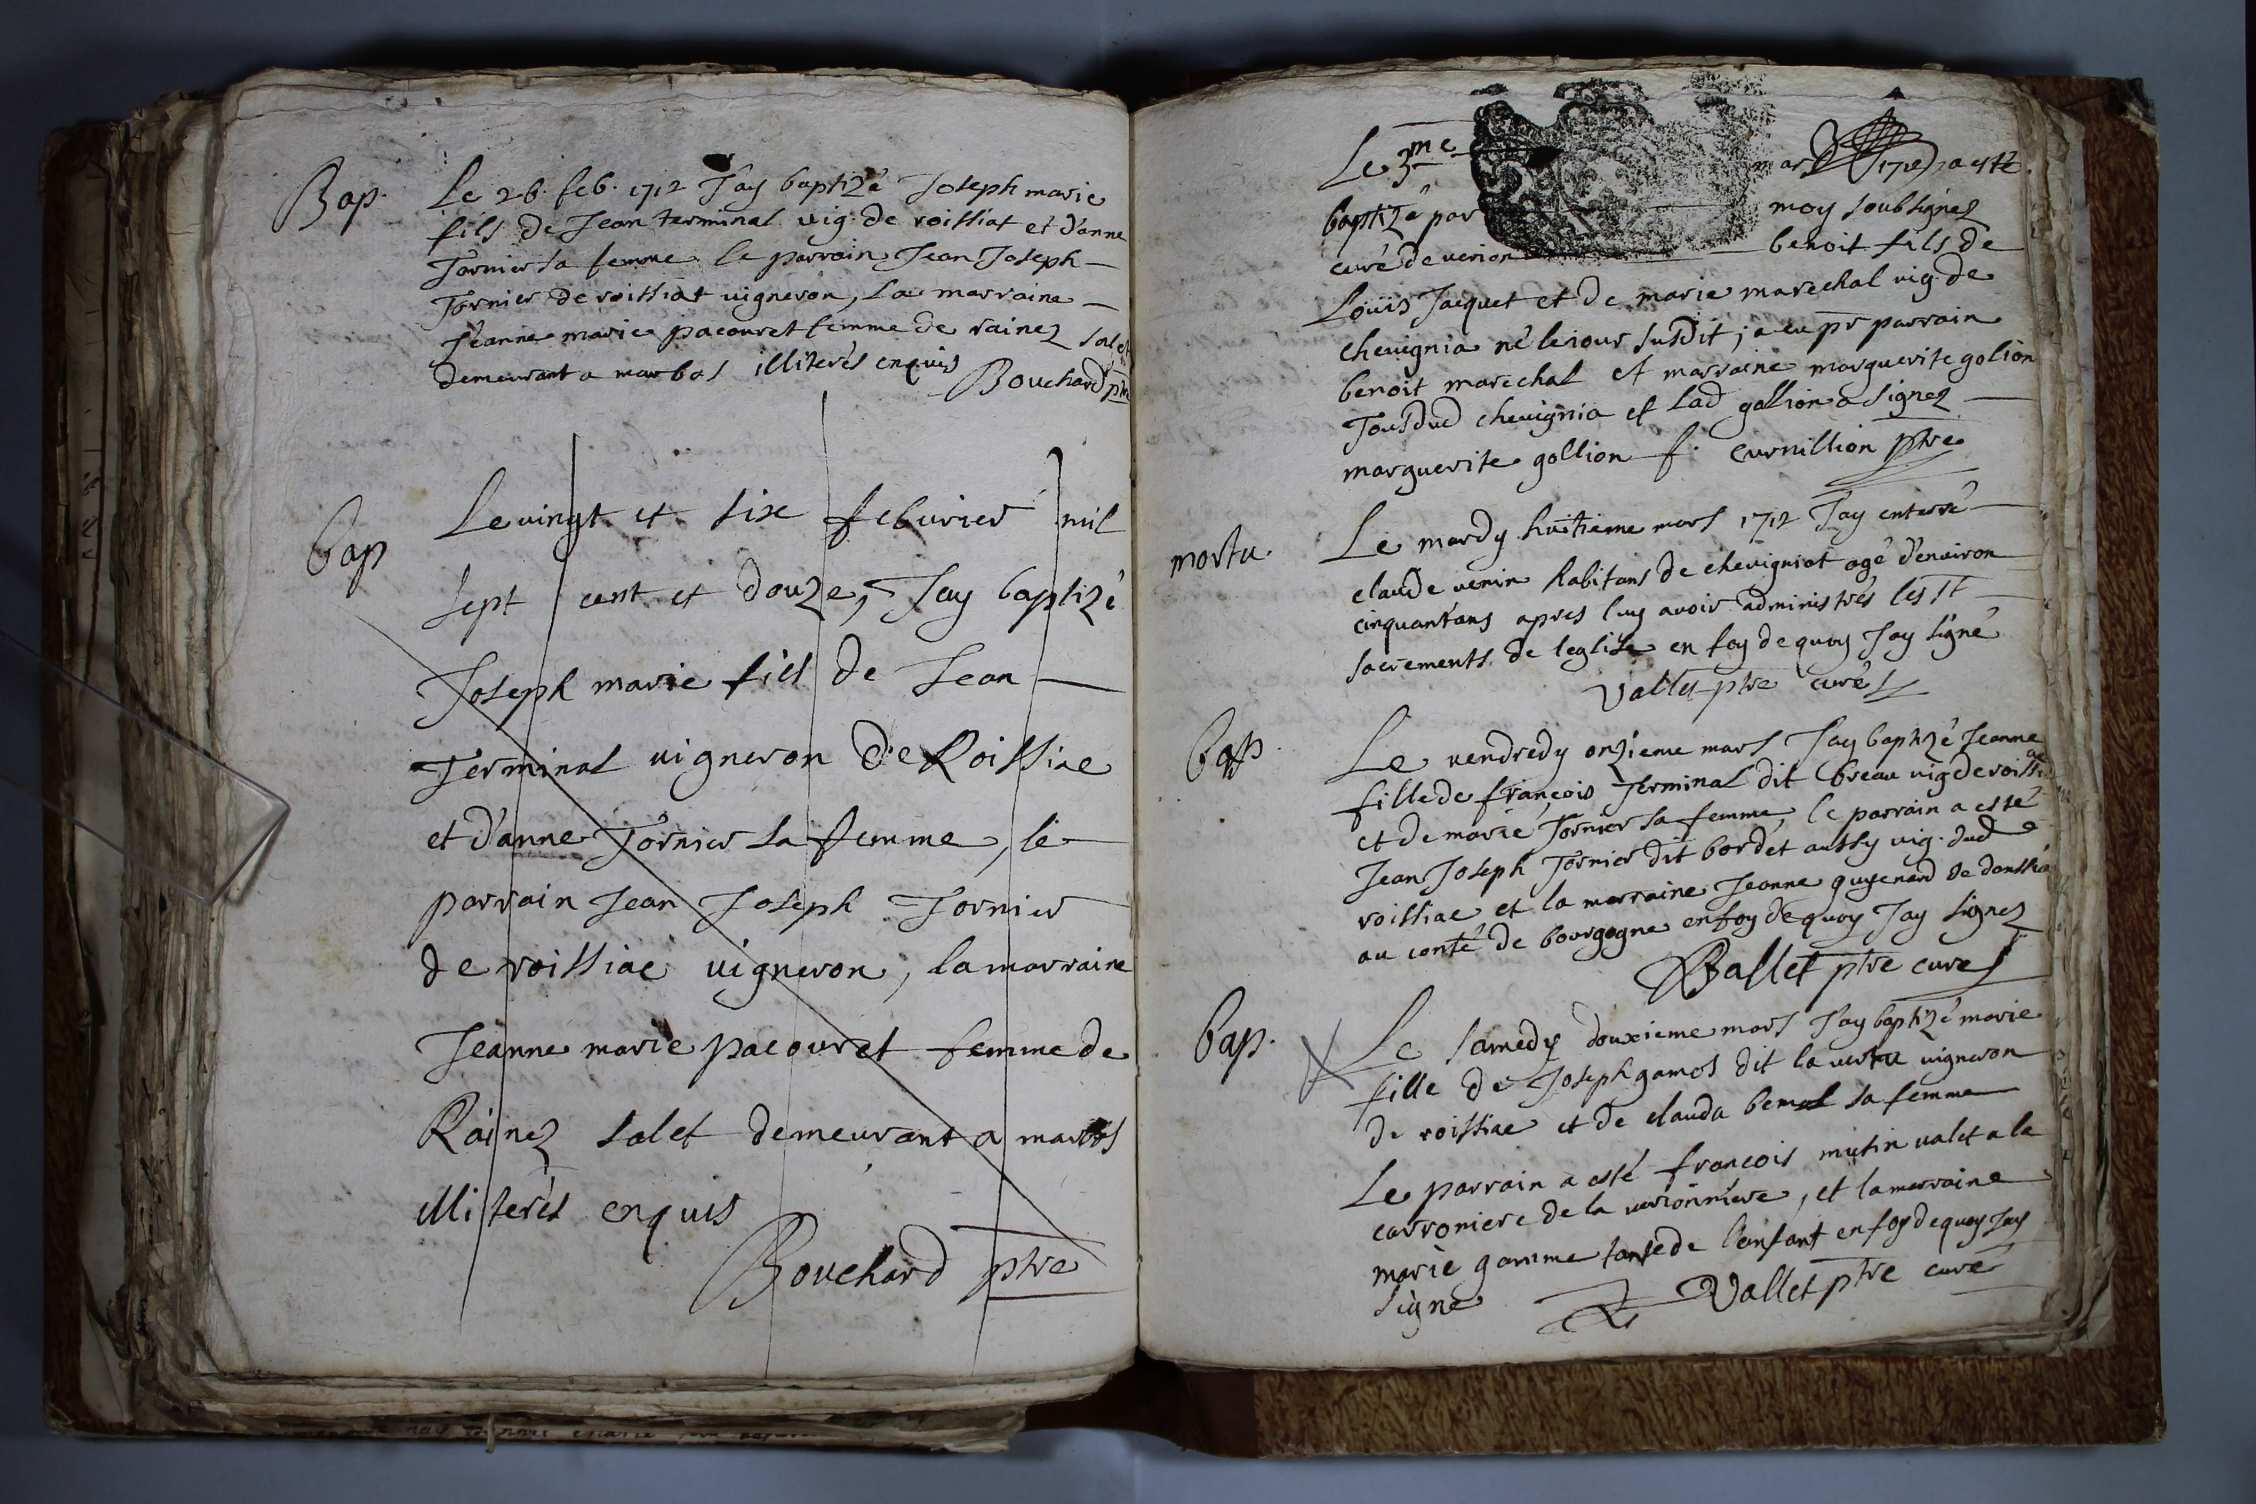 Bap. Le 26. feb. 1712 J'ay baptizé Joseph marie
fils de Jean terminal vig. de roissiat et d'anne
Tornier sa femme le parrain Jean Joseph
Tornier de roissiat vigneron, La marraine
Jeanne marie pacouret femme de rainez salet
demeurant a marbos illiterés enquis
Bouchard ptre
bap Le vingt et six feburier mil
sept cent et douze, J'ay baptizé
Joseph marie fils de Jean
Terminal vigneron de Roissiac
et d'anne Tornier sa femme, le
parrain Jean Joseph Tornier
de roissiac vigneron, la marraine
Jeanne marie pacouret femme de
Rainez salet demeurant a marbos
illiterés enquis
Bouchard ptre
Le 3me mars 1712 a esté
baptizé par moy soubsignez
curé de verion benoit fils de
Loüis Jacquet et de marie marechal vig. de
chevignia né le iour susdit; a eu pr parrain
benoit marechal et marraine marguerite golion
Tous dud chevignia et lad gollion a signez
marguerite gollion f. curnillion ptre
mortu. Le mardy huitieme mars 1712 J'ay enterré
claude venin habitans de chevigniat agé d'environ
cinquant'ans apres luy avoir administrés les st
sacrements de leglise en foy de quoy J'ay signé
Vallet ptre curé
bap. Le vendredy onzieme mars J'ay baptizé Jeanne
fille de françois Terminal dit breau vig de roissiac
et de marie Tornier sa femme, le parrain a esté
Jean Joseph Tornier dit bordet aussy vig. dud
roissiac et la marraine Jeanne guyenard de donssia
au conté de bourgogne en foy de quoy J'ay signez
Vallet ptre curé
bap. Le samedy douxieme mars J'ay baptizé marie
fille de Joseph gamos dit la vertu vigneron
de roissiac et de clauda bemol sa femme
Le parrain a esté françois mutin valet a la
carroniere de la verionniere, et la marraine
marie gamme tante de l'enfant en foy de quoy J'ay
signé Vallet ptre curé